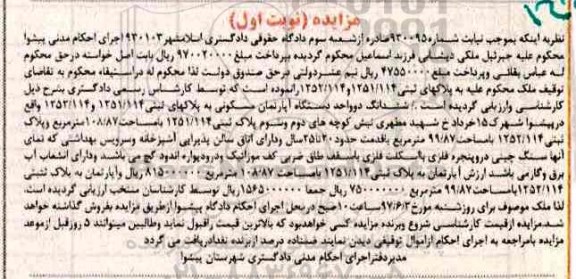 مزایده (نوبت اول)
نظربه اینکه بموجب نیابت شماره ۹۳۰۰۹۵صادره ازشعبه سوم دادگاه حقوقی دادگستری اسلامشهر ۹۳۰۱۰۳ اجرای احکام مدنی پیشوا
محکوم علیه جبرئیل ملکی دیشابی فرزند اسماعیل محکوم گردیده بپرداخت مبلغ ۹۷۰۰۲۰۰۰۰ ریال بابت اصل خواسته درحق محکوم
له عباس بقائی وپرداخت مبلغ ۴۷۵۵۰۰۰۰ ریال نیم عشردولتی درحق صندوق دولت لذا محکوم له دراستیفاء محکوم به تقاضای
توقیف ملک محکوم علیه به پلاکهای ثبتی ۱۲۵۱/۱۱۴و۱۲۵۲/۱۱۴رانموده است که توسط کارشناس رسمی دادگستری بشرح ذیل
کارشناسی وارزیابی گردیده است ./ ششدانگ دوواحد دستگاه آپارتمان مسکونی به پلاکهای ثبتی ۱۲۵۱/۱۱۴ و ۱۲۵۲/۱۱۴ واقع
درپیشوا شهرک ۱۵خرداد خ شهید مطهری نبش کوچه های دوم وسوم پلاک ثبتی ۱۲۵۱/۱۱۴ بامساحت ۱۰۸/۸۷مترمربع وپلاک
ثبتی ۱۲۵۲/۱۱۴ بامساحت ۹۹/۸۷ مترمربع باقدمت حدود ۲۰تا۲۵سال ودارای اتاق سالن پذیرایی آشپزخانه وسرویس بهداشتی که نمای
آنها سنگ چینی دروپنجره فلزی بااسکلت فلزی باسقف طاق ضربی کف موزائیک ودرودیواره اندود گچ می باشد ودارای انشعاب آب
برق وگازمی باشد ارزش آپارتمان به پلاک ثبتی ۱۲۵۱/۱۱۴ بامساحت ۱۰۸/۸۷ مترمربع ۸۱۵۰۰۰۰۰۰ ریال وآپارتمان به پلاک ثبتی
۱۲۵۲/۱۱۴بامساحت ۹۹/۸۷ مترمربع ۷۵۰۰۰۰۰۰۰ ریال جمعا ۱۵۶۵۰۰۰۰۰۰ ریال توسط کارشناسان منتخب ارزیابی گردیده است.
لذا ملک موصوف برای روزشنبه مورخ ۹۷/۶/۳ ساعت ۱۰صبح درمحل اجرای احکام دادگاه پیشوا ازطریق مزایده بفروش گذاشته خواهد
شد.مزایده ازقیمت کارشناسی شروع وبرنده مزایده کسی خواهدبود که بالاترین قیمت راقبول نماید وطالبین میتوانند ۵ روزقبل ازموعد
مزایده بامراجعه به اجرای احکام ازاموال توقیفی دیدن نمایند ضمنا ده درصد ازبرنده نقدادریافت می گردد
مدیردفتراجرای احکام مدنی دادگستری شهرستان پیشوا